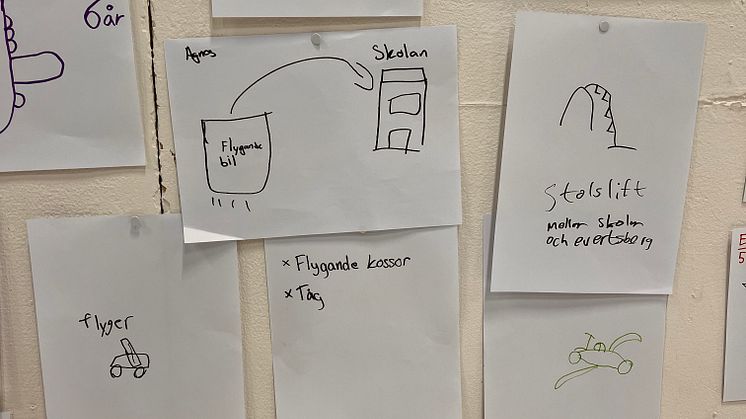 6 år
Agnes
Skolan
Flygande
bil
Stolslift
mellan skolan
och evertsberg
flyger
× Flygande kossor
× Tåg
E
5